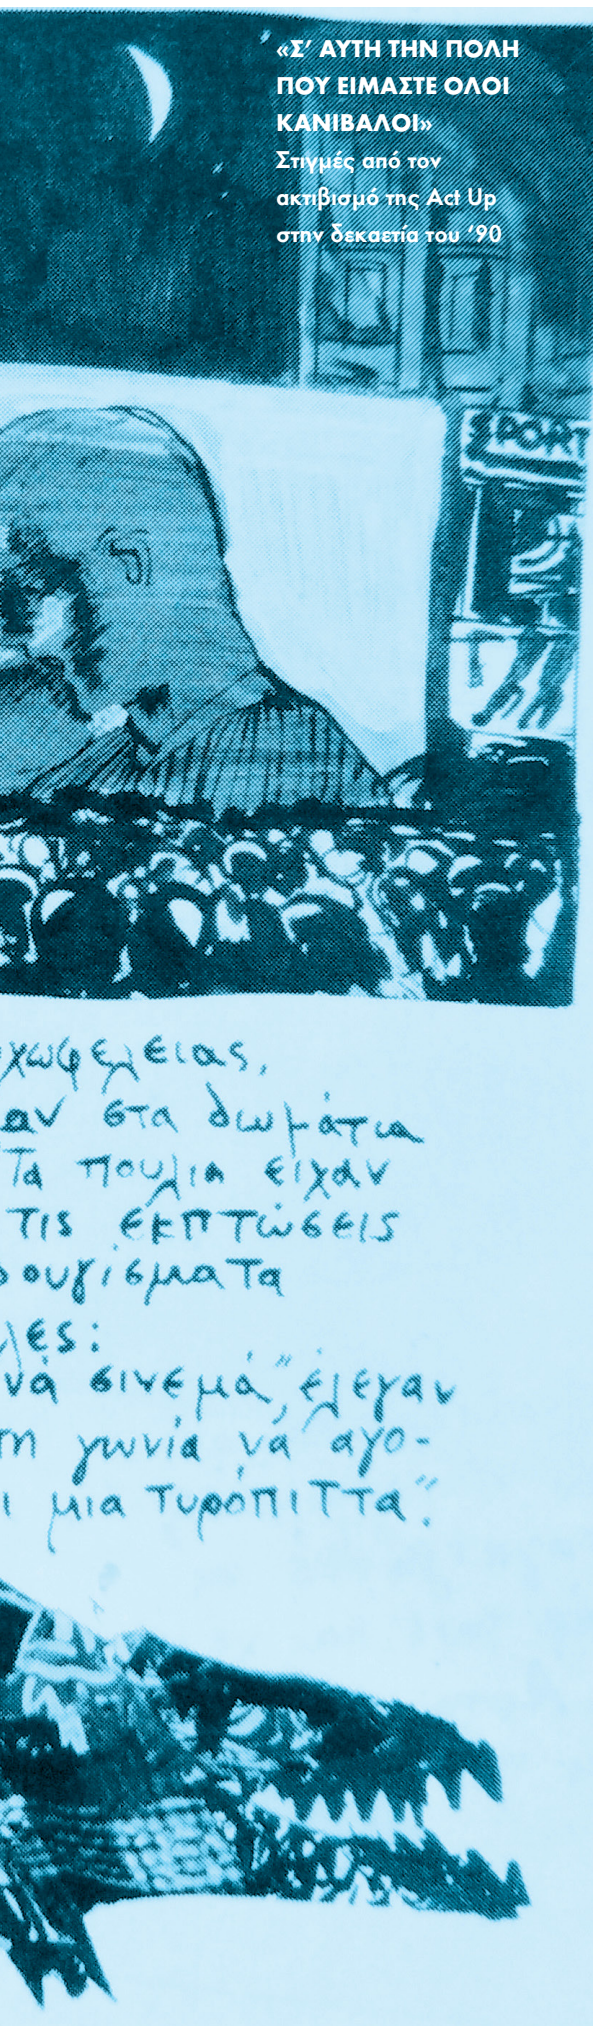 «Σ’ ΑΥΤΗ ΤΗΝ ΠΟΛΗ
ΠΟΥ ΕΙΜΑΣΤΕ ΟΛΟΙ
ΚΑΝΙΒΑΛΟΙ»
Στιγμές από τον
ακτιβισμό της Act Up
στην δεκαετία του ’90
SPORT
χωφελειας,
αν στα δωμάτια
Τα πουλια είχαν
τις εκπτώσεις
ουγίσματα
λες:
να σινεμά", έλεγαν
τη γωνία να αγο-
ι μια τυρόπιττα".